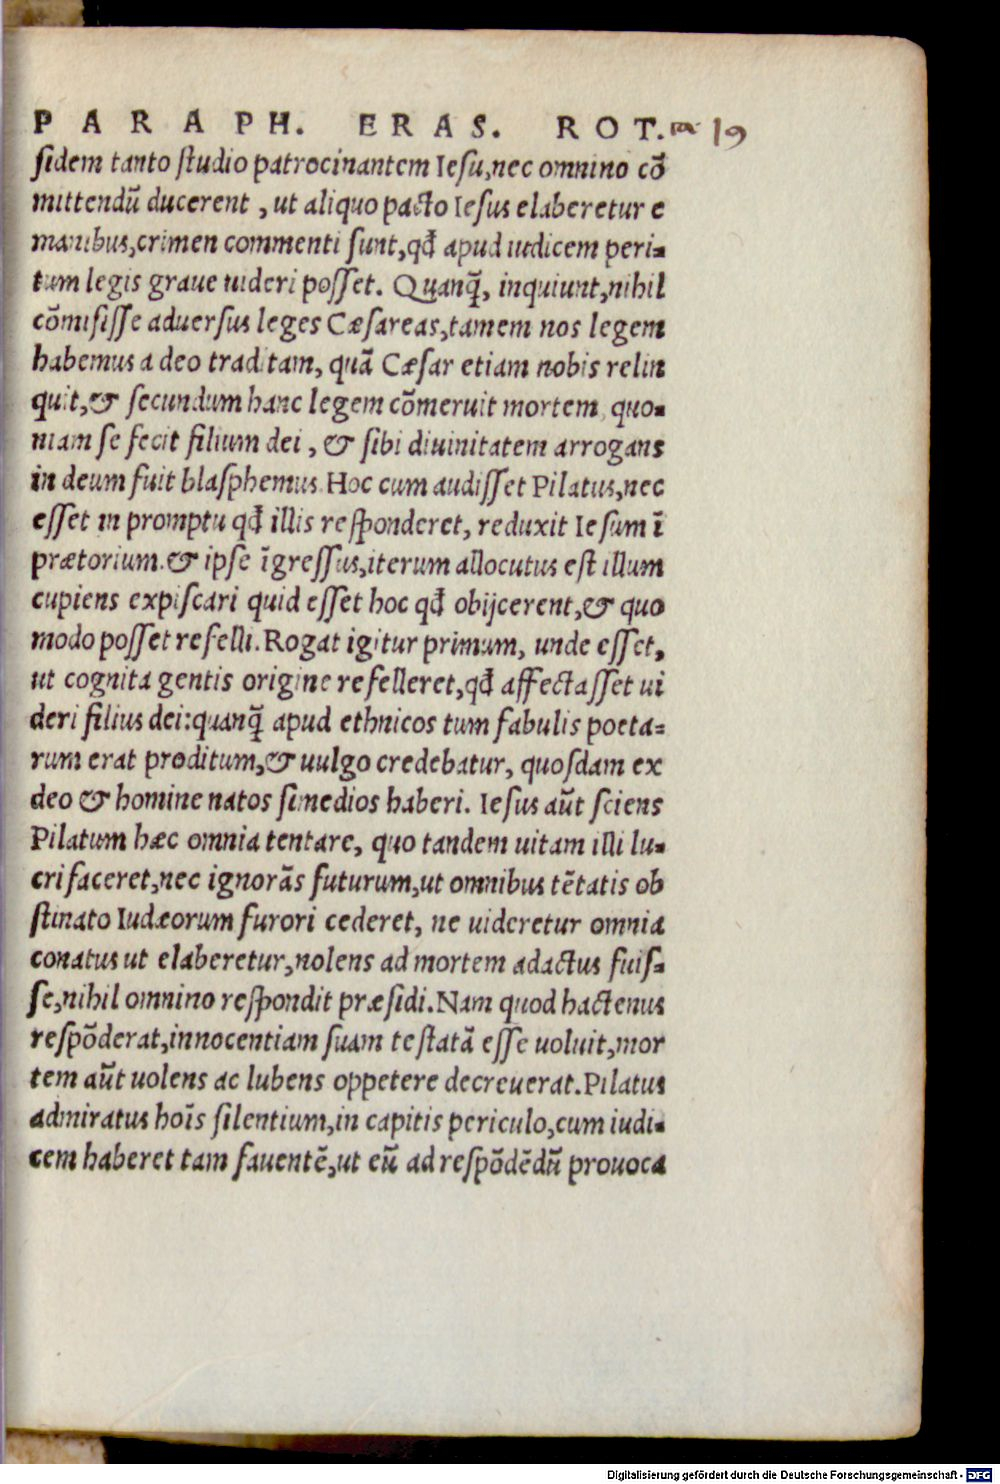 PARAPH. ERAS. ROT. 19
sidem tanto studio patrocinantem Iesu, nec omnino cõ
mittendũ ducerent, ut aliquo pacto Iesus elaberetur e
manibus, crimen commenti sunt, qđ apud iudicem peri-
tum legis graue uideri posset. Quanq̃, inquiunt, nihil
cõmisisse aduersus leges Cæsareas, tamem nos legem
habemus a deo traditam, quã Cæsar etiam nobis relin
quit, & secundum hanc legem cõmeruit mortem, quo-
niam se fecit filium dei, & sibi diuinitatem arrogans
in deum fuit blasphemus. Hoc cum audisset Pilatus, nec
esset in promptu qđ illis responderet, reduxit Iesum ĩ
prætorium. & ipse ĩgressus, iterum allocutus est illum
cupiens expiscari quid esset hoc qđ obijcerent, & quo
modo posset refelli. Rogat igitur primum, unde esset,
ut cognita gentis origine refelleret, qđ affectasset ui
deri filius dei: quanq̃ apud ethnicos tum fabulis poeta-
rum erat proditum, & uulgo credebatur, quosdam ex
deo & homine natos simedios haberi. Iesus aũt sciens
Pilatum hæc omnia tentare, quo tandem uitam illi lu-
crifaceret, nec ignorãs futurum, ut omnibus tẽtatis ob
stinato Iudæorum furori cederet, ne uideretur omnia
conatus ut elaberetur, nolens ad mortem adactus fuis-
se, nihil omnino respondit præsidi. Nam quod hactenus
respõderat, innocentiam suam testatã esse uoluit, mor
tem aũt uolens ac lubens oppetere decreuerat. Pilatus
admiratus hoĩs silentium, in capitis periculo, cum iudi-
cem haberet tam fauentẽ, ut eũ ad respõdẽdũ prouoca
Digitalisierung gefördert durch die Deutsche Forschungsgemeinschaft - DFG